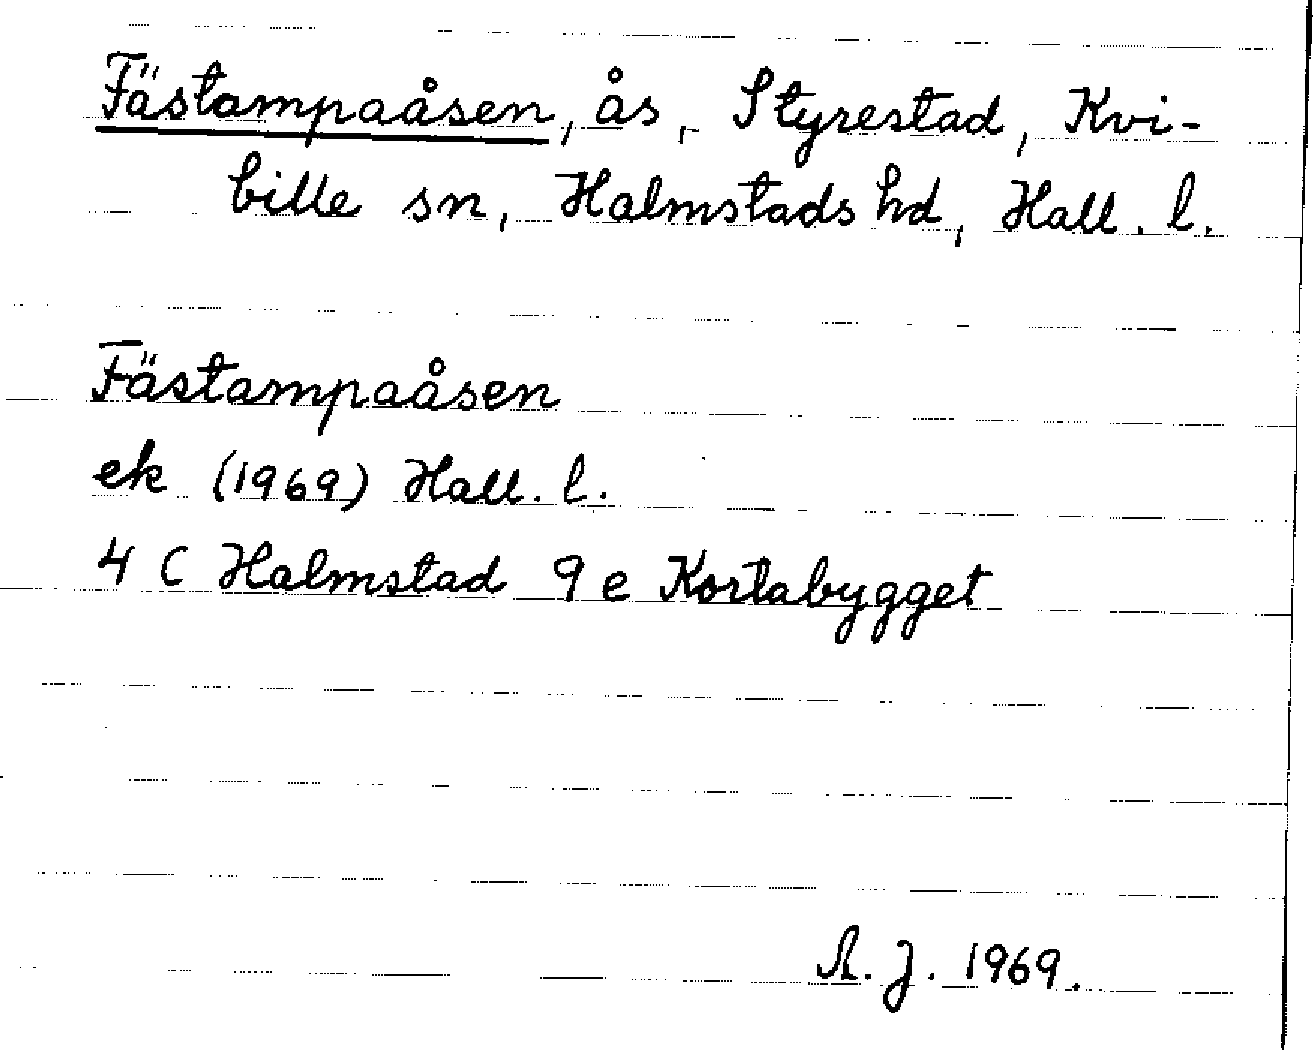 Fästampaåsen, ås, Styrestad, Kvi-
bille sn, Halmstads hd, Hall. l.
Fästampaåsen
ek (1969) Hall. l.
4 C Halmstad 9 e Kortabygget
A. J. 1969.